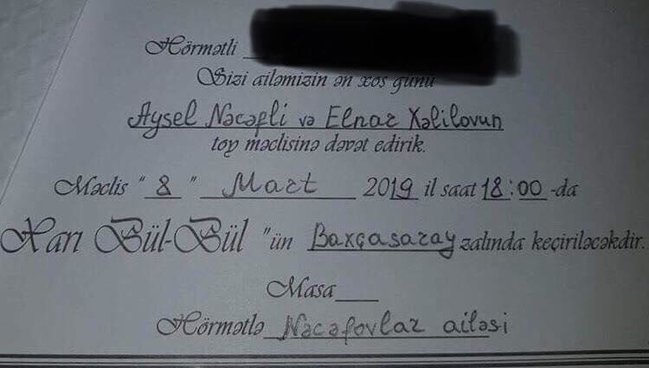 Hörmətli
Sizi ailəmizin ən xoş günü
Aysel Nəcəfli və Elnar Xəlilovun
toy məclisinə dəvət edirik.
Məclis "8" Mart 2019 il saat 18:00-da
Xarı Bül-Bül "ün Baxçasaray zalında keçiriləcəkdir.
Masa
Hörmətlə Nəcəfovlar ailəsi